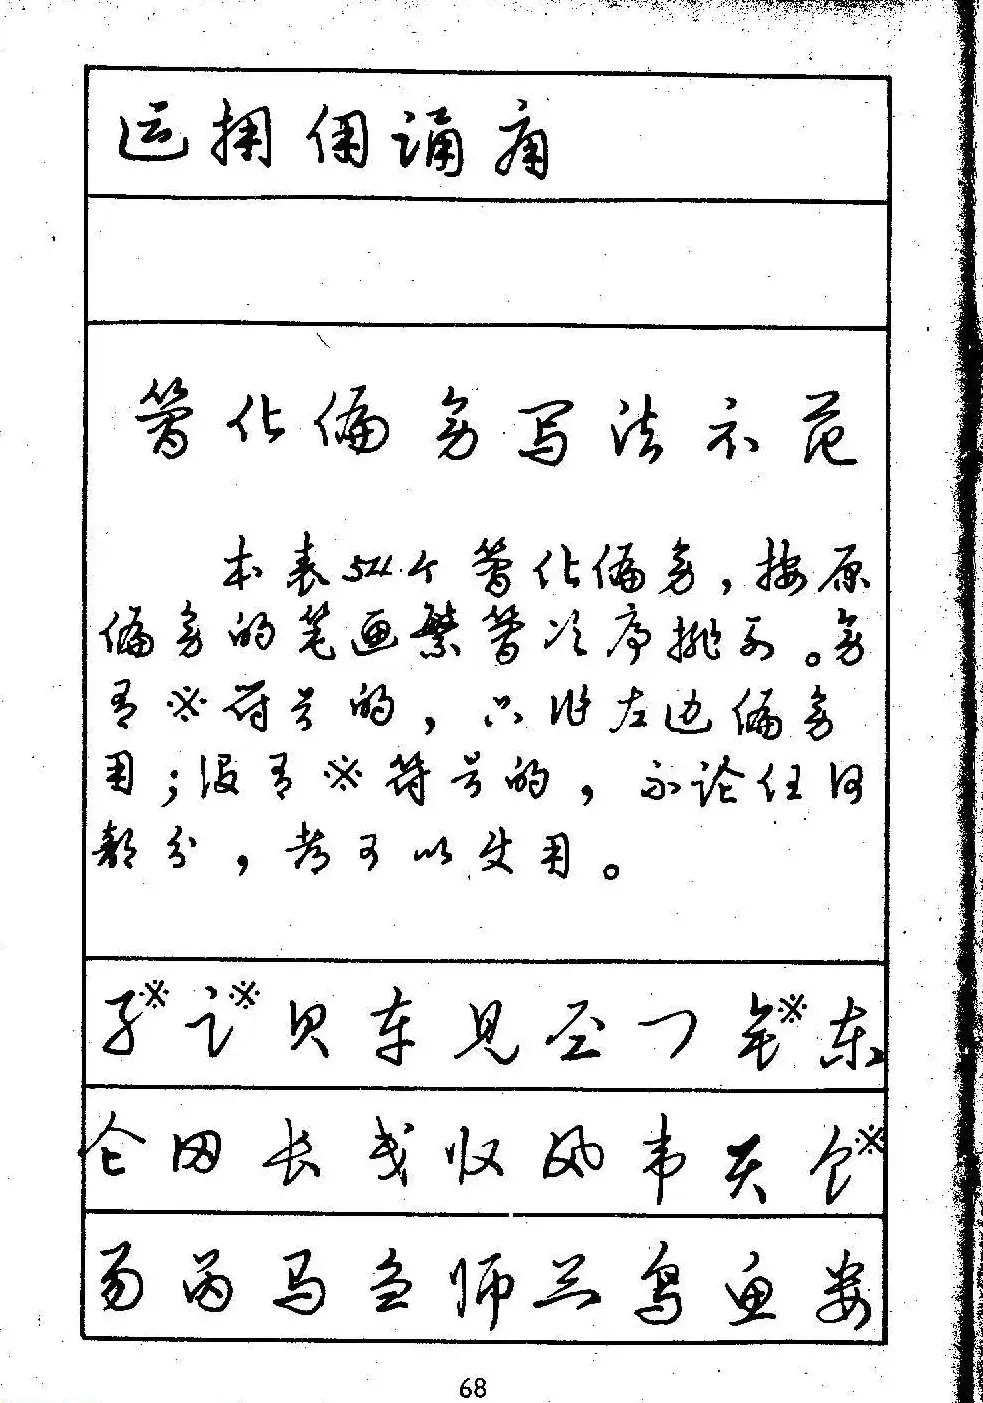 运拥佣诵痛
简化偏旁写法示范
本表54个简化偏旁，按原
偏旁的笔画繁简次序排列。旁
有※符号的，只准左边偏旁
用；没有※符号的，不论任何
部分，都可以使用。
纟※讠※贝车见𢀖门钅※东
仑冈长戋収风韦页饣※
昜呙马刍师兰鸟鱼娄
68